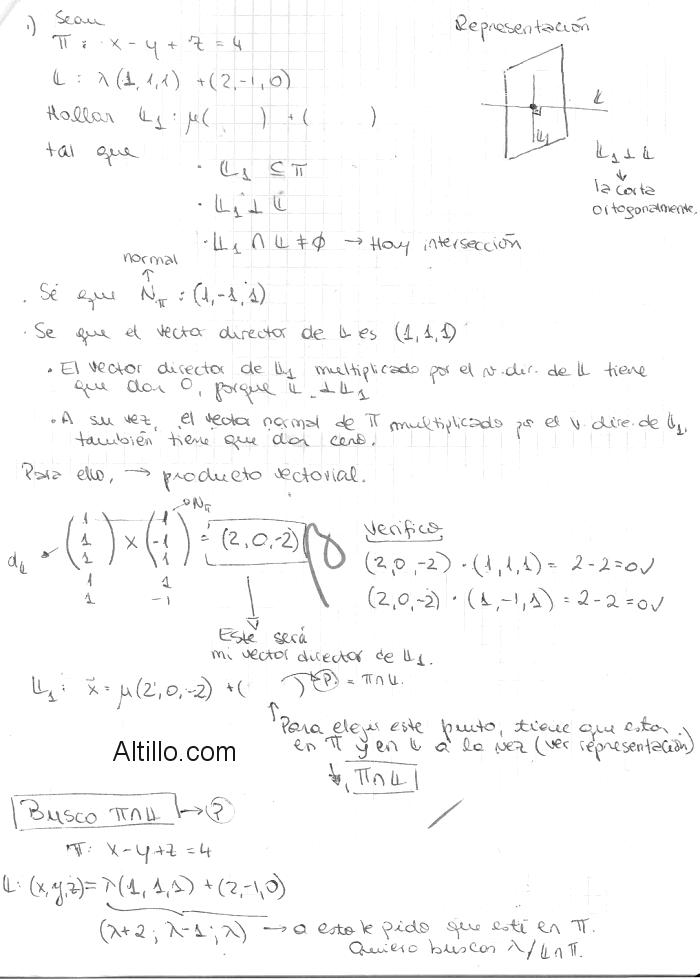 1) Sean
Π: x - y + z = 4
L: λ(1,1,1) + (2,-1,0)
Hallar L₁: μ(      ) + (      )
tal que
· L₁ ⊆ Π
· L₁ ⊥ L
· L₁ ∩ L ≠ ∅ → Hay intersección
Representación
L
L₁
L₁ ⊥ L
↓
la corta
ortogonalmente.
normal
↑
· Sé que N_Π: (1,-1,1)
· Se que el vector director de L es (1,1,1)
· El vector director de L₁ multiplicado por el v. dir. de L tiene
que dar 0, porque L ⊥ L₁
· A su vez, el vector normal de Π multiplicado por el v. dire. de L₁,
también tiene que dar cero.
Para ello, → producto vectorial.
d_L (1 1 1) × (1 -1 1) = (2,0,-2)
N_Π
1 1
1 -1
Verifico
(2,0,-2) · (1,1,1) = 2-2=0 ✓
(2,0,-2) · (1,-1,1) = 2-2=0 ✓
Este será
mi vector director de L₁.
L₁: x̄ = μ(2,0,-2) + (      ) → P = Π∩L.
Para elegir este punto, tiene que estar
en Π y en L a la vez (ver representación)
↓, Π∩L
Altillo.com
Busco Π∩L → ?
Π: x-y+z=4
L: (x,y,z)= λ(1,1,1) + (2,-1,0)
(λ+2; λ-1; λ) → a esto le pido que esté en Π.
Quiero buscar λ/L∩Π.